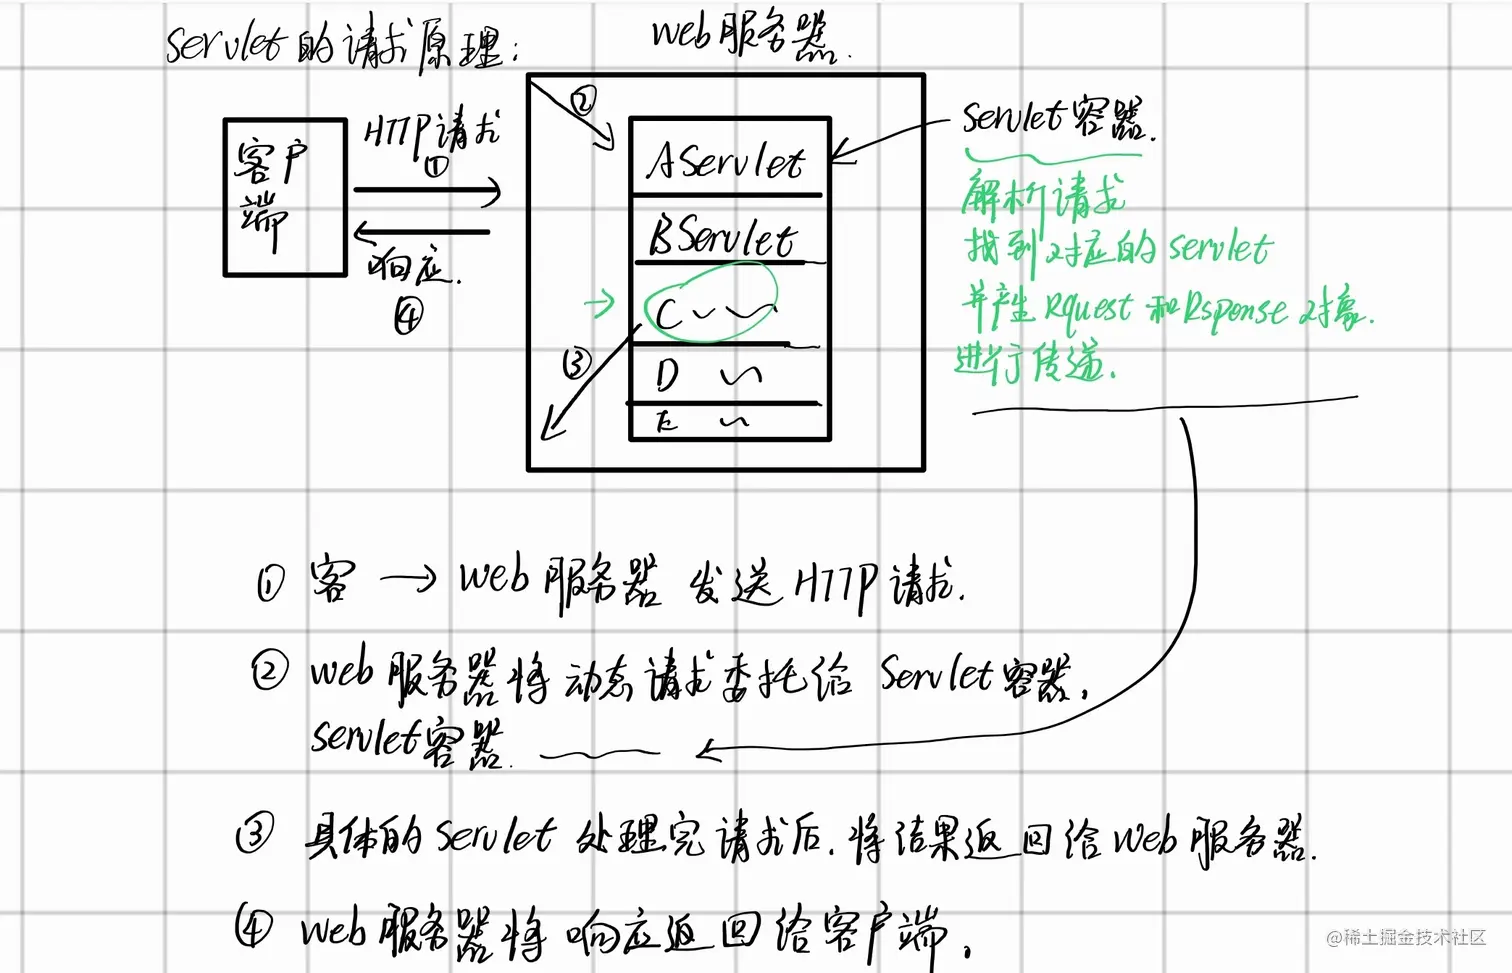 Servlet的请求原理：
web服务器.
客户
端
HTTP请求
①
响应.
④
②
AServlet
BServlet
C
D
E
③
Servlet容器.
解析请求
找到对应的servlet
并产生Rquest和Rsponse对象.
进行传递.
① 客 → web服务器 发送HTTP请求.
② web服务器将动态请求委托给 Servlet容器,
servlet容器.
③ 具体的Servlet 处理完请求后,将结果返回给Web服务器.
④ web服务器将响应返回给客户端.
@稀土掘金技术社区